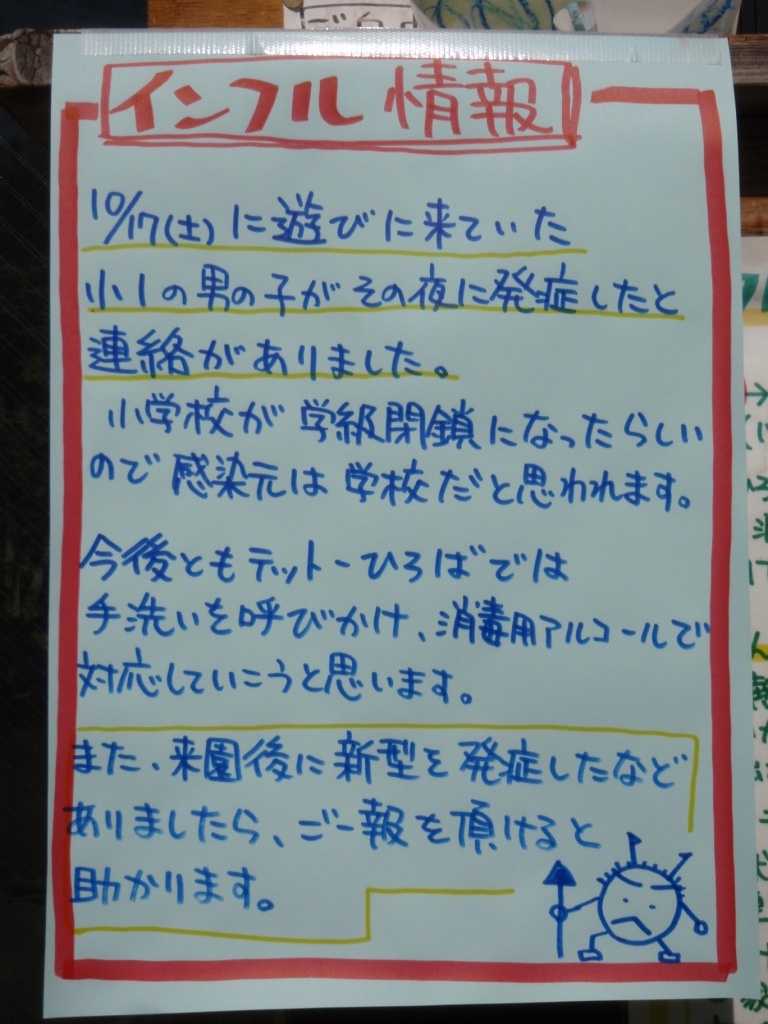 インフル 情報
10/17(土)に遊びに来ていた
小1の男の子がその夜に発症したと
連絡がありました。
小学校が学級閉鎖になったらしい
ので感染元は学校だと思われます。
今後ともテットーひろばでは
手洗いを呼びかけ、消毒用アルコールで
対応していこうと思います。
また、来園後に新型を発症したなど
ありましたら、ご一報を頂けると
助かります。